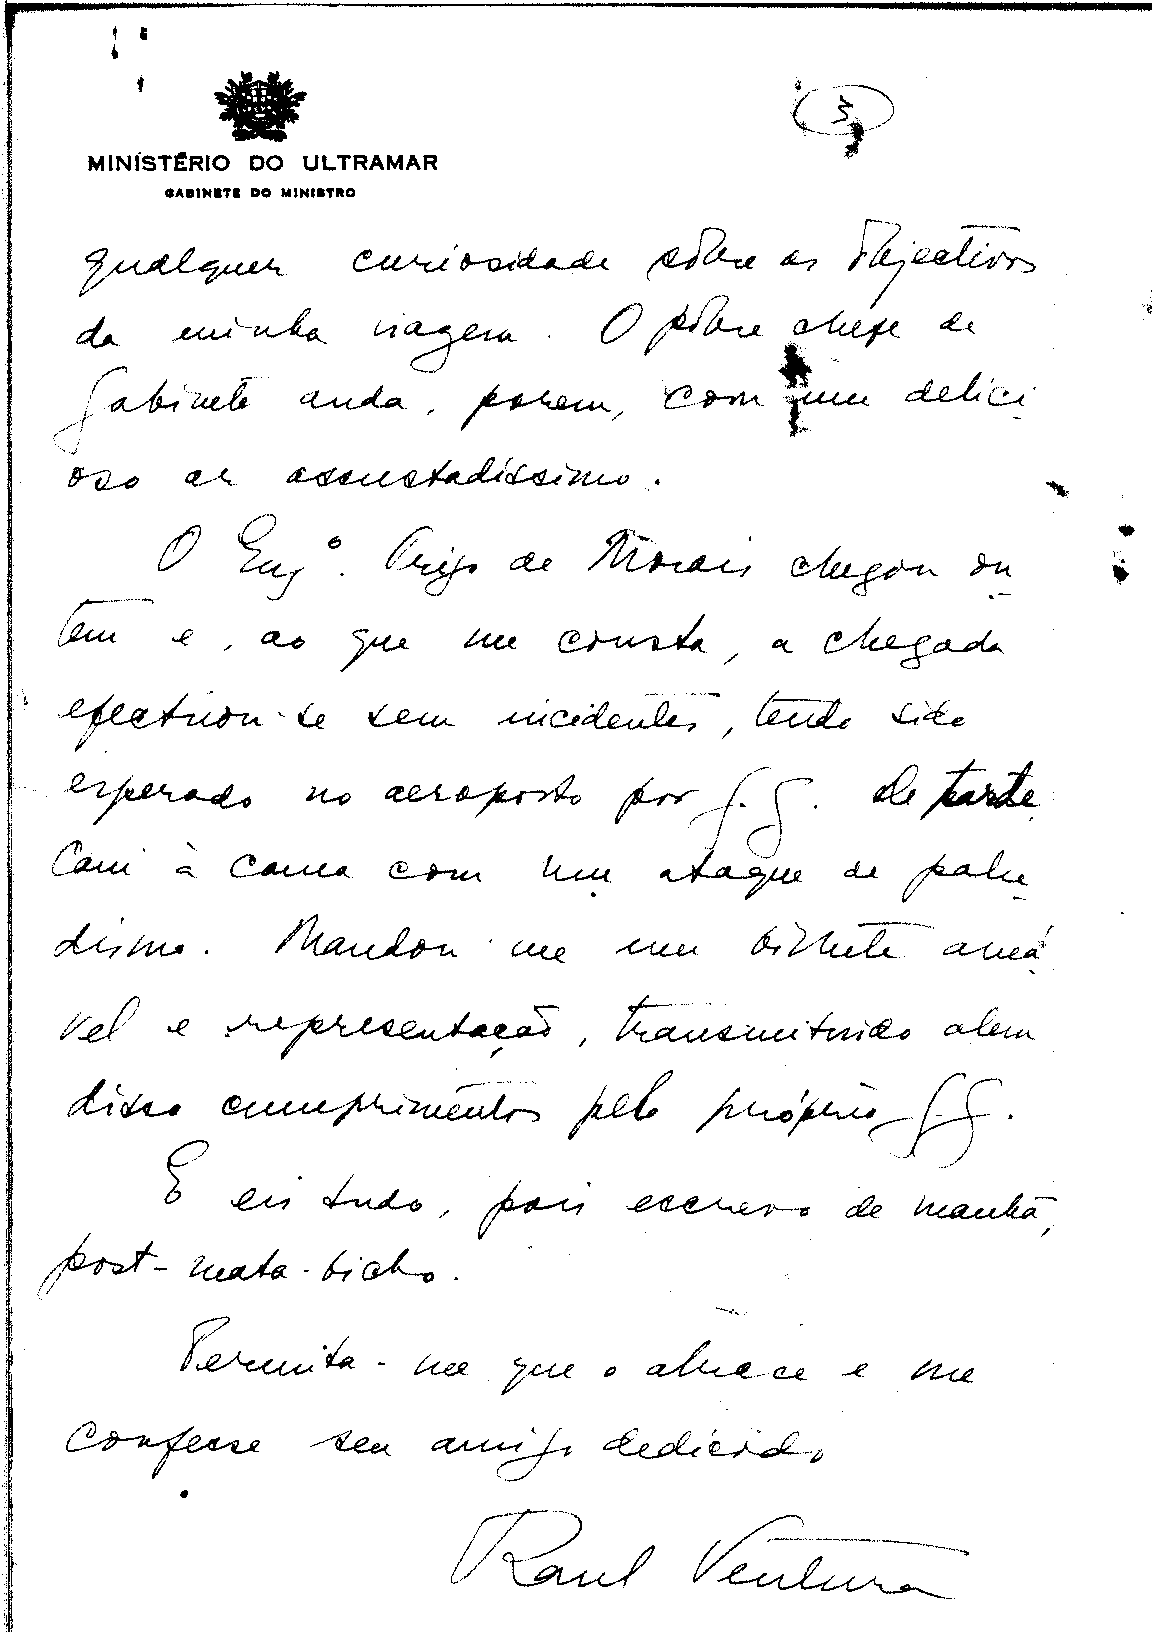 3
MINISTÉRIO DO ULTRAMAR
GABINETE DO MINISTRO
qualquer curiosidade sôbre os objectivos
da minha viagem. O pobre chefe de
gabinete anda, porem, com um delici
oso ar assustadíssimo.
O Engº. Trigo de Morais chegou on
tem e, ao que me consta, a chegada
efectuou-se sem incidentes, tendo sido
esperado no aeroporto por G. G. De tarde
caiu à cama com um ataque de palu
dismo. Mandou-me um bilhete amá
vel e representação, transmitindo alem
disso cumprimentos pelo próprio G.G.
E eis tudo, pois escrevo de manhã,
post-mata-bicho.
Permita-me que o abrace e me
confesse seu amigo dedicado
Raul Ventura